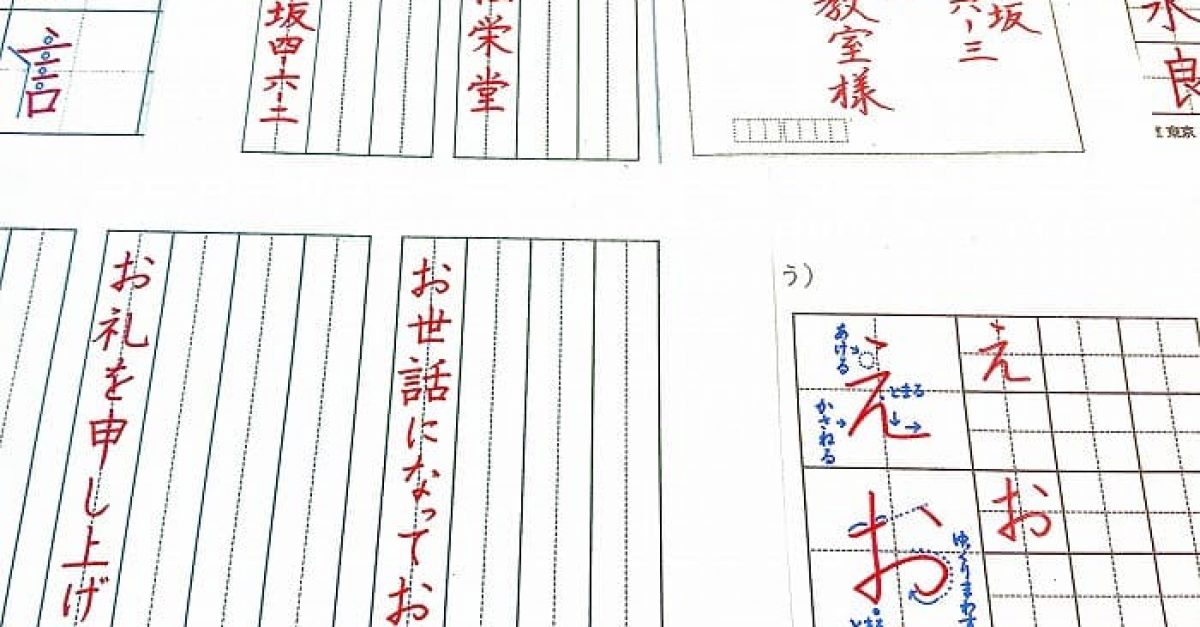 言
坂四-六-三
栄堂
坂
六-三
教室様
良
東京
お礼を申し上げ
お世話になってお
う)
え
あける
とまる
かさねる
え
お
ゆっくりまわす
とまる
お